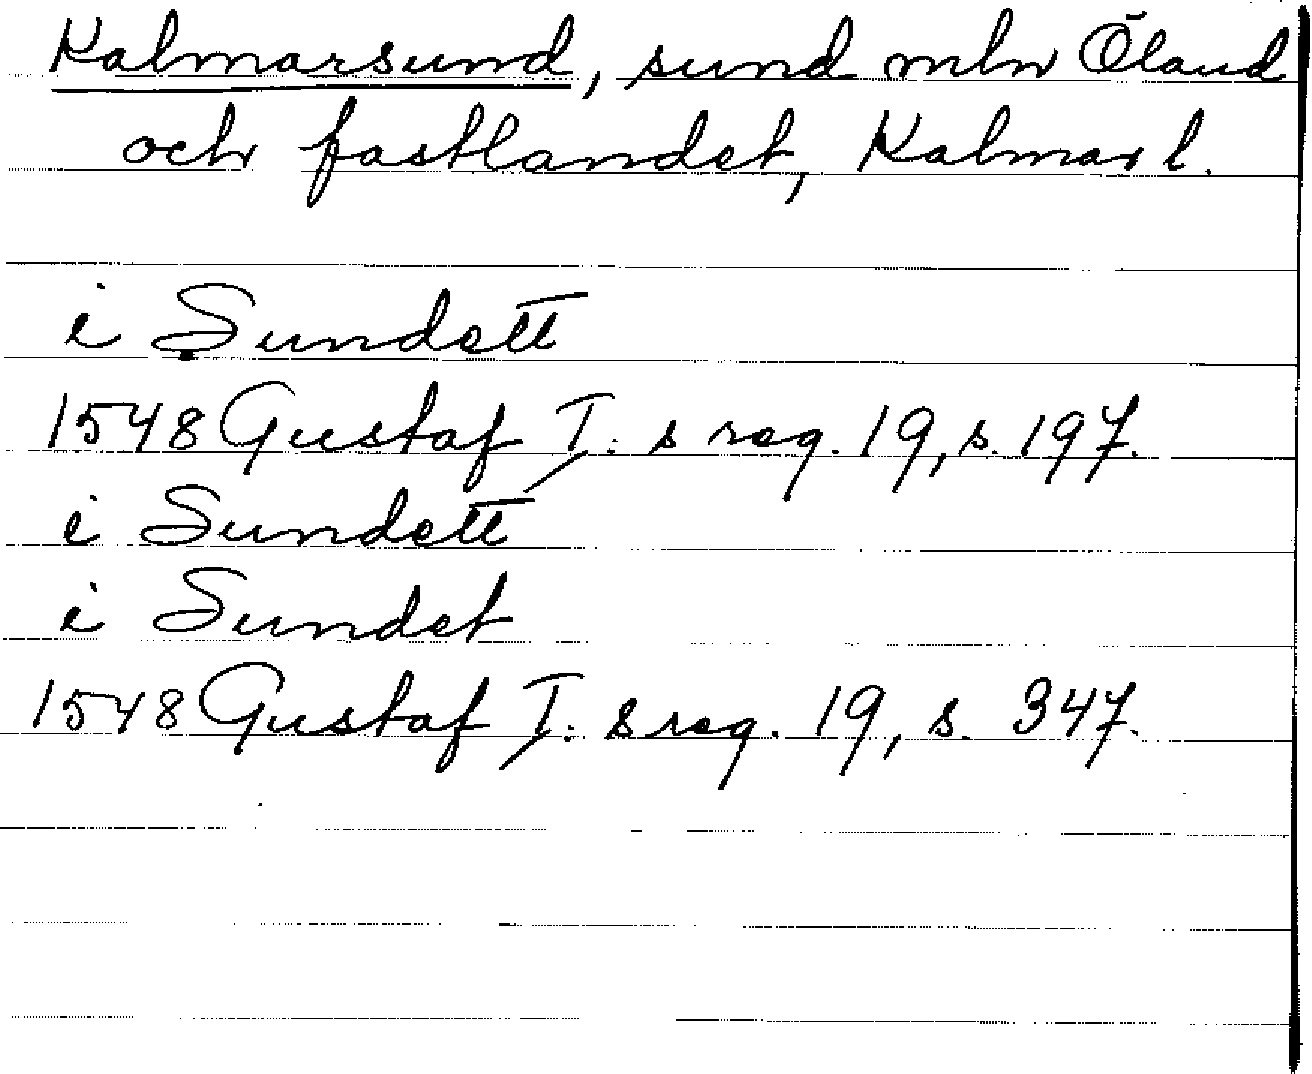 Kalmarsund, sund mln Öland
och fastlandet, Kalmar l.
i Sundett
1548 Gustaf I: s reg. 19, s. 197.
i Sundett
i Sundet
1548 Gustaf I: s reg. 19, s. 347.